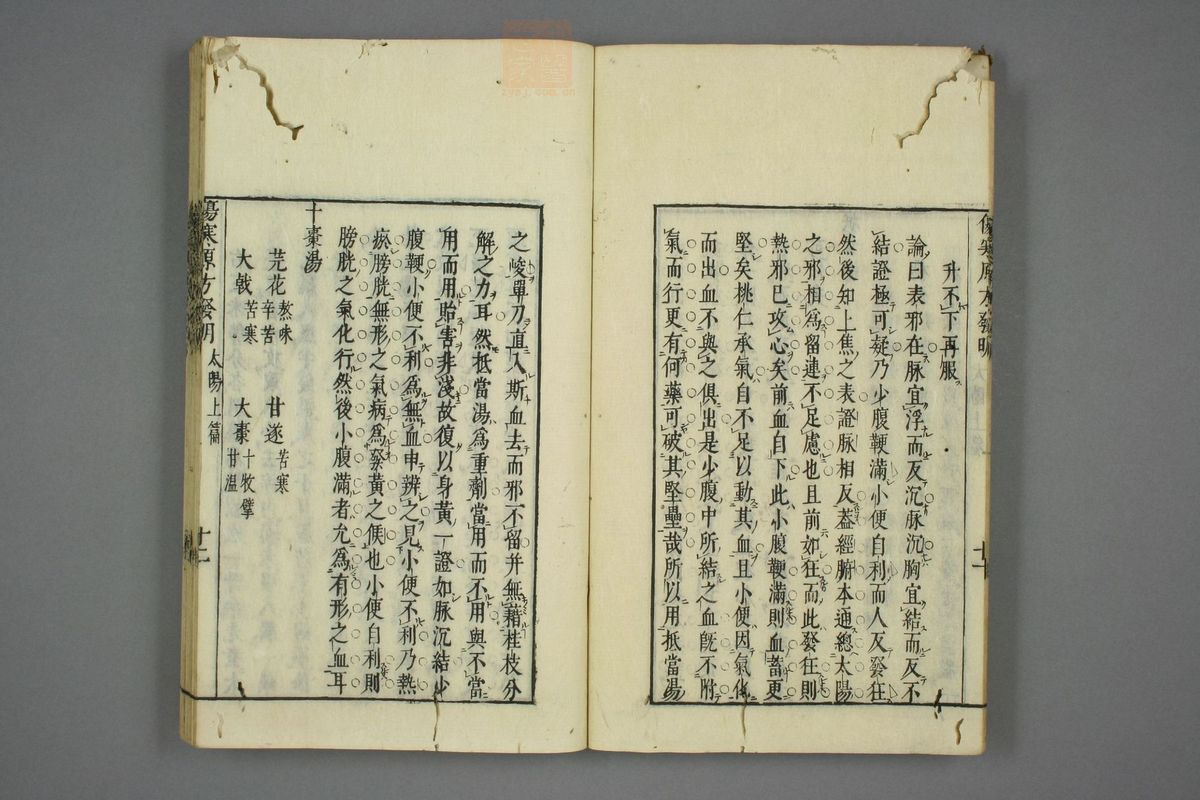 傷寒原方發明
升不下再服
論曰表邪在脉宜浮而反沉脉沉胸宜結而反不
結證極可疑乃少腹鞕滿小便自利而人反發狂
然後知上焦之表證脉相反葢經腑本通總太陽
之邪相爲留連不足慮也且前如狂而此發狂則
熱邪已攻心矣前血自下此小腹鞕滿則血蓄更
堅矣桃仁承氣自不足以動其血且小便因氣化
而出血不與之俱出是少腹中所結之血旣不附
氣而行更有何藥可破其堅壘哉所以用抵當湯
之峻單刀直入斯血去而邪不留并無藉桂枝分
解之力耳然抵當湯爲重劑當用而不用與不當
用而用貽害非淺故復以身黃一證如脉沉結少
腹鞕小便不利爲無血申辨之見小便不利乃熱
瘀膀胱無形之氣病爲發黃之候也小便自利則
膀胱之氣化行然後小腹滿者允爲有形之血耳
十棗湯
芫花 熬味辛苦 甘遂 苦寒
大戟 苦寒 大棗 十枚擘甘溫
傷寒原方發明 太陽上篇 十二
zysj.com.cn